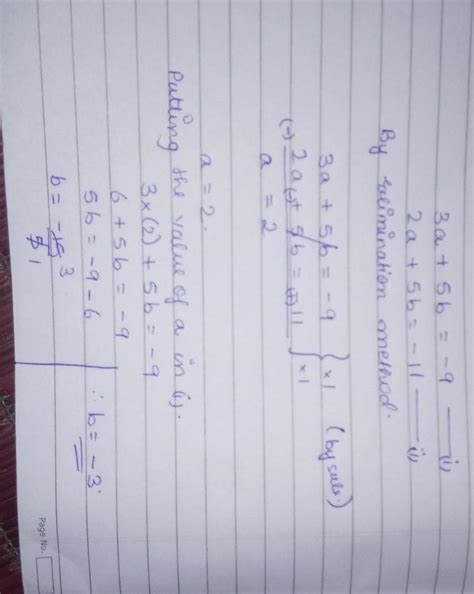 3a + 5b = -9 — (i)
2a + 5b = -11 — (ii)
By elimination method.
3a + 5b = -9 } ×1 (by sub.)
(-) 2a (-)+ 5b = (+)-11 } ×1
a = 2
a = 2.
Putting the value of a in (i).
3×(2) + 5b = -9
6 + 5b = -9
5b = -9 - 6
b = -15 3
5 1
∴ b = -3.
Page No.